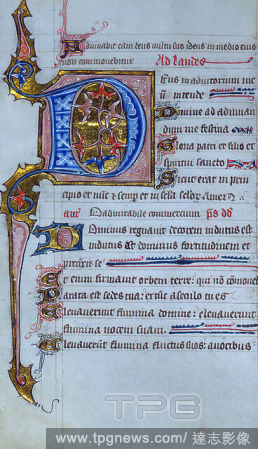 Adiuuabit eam deus uultu suo deus in medio eius
non commouebitur Ad laudes
Deus in adiutorium me
um intende
Domine ad adiuuan
dum me festina
Gloria patri et filio et
spiritui sancto
Sicut erat in prin
cipio et nunc et semper et in secula seclor amen
ant O admirabile commercium ps dd
Dominus regnauit decorem indutus est
indutus est dominus fortitudinem et
precinxit se
Et enim firmauit orbem terre: qui non commoue
Parata est sedes tua: ex tunc a seculo tu es
Eleuauerunt flumina domine: eleuauerunt
flumina uocem suam
Eleuauerunt flumina fluctus suos: a uocibus
TPG
www.tpgnews.com / 達志影像